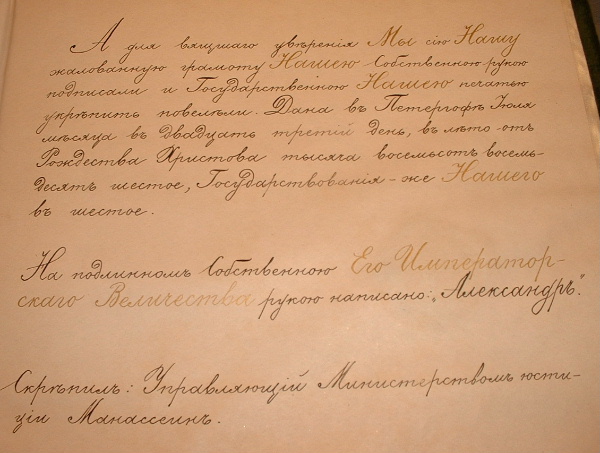 А для вящшаго увѣренія Мы сію Нашу
жалованную грамоту Нашею Собственною рукою
подписали и Государственною Нашею печатью
укрѣпить повелѣли. Дана въ Петергофѣ Іюля
мѣсяца въ двадцать третій день, въ лѣто отъ
Рождества Христова тысяча восемьсотъ восемь-
десятъ шестое, Государствованія-же Нашего
въ шестое.
На подлинномъ Собственною Его Император-
скаго Величества рукою написано: „Александръ".
Скрѣпилъ: Управляющій Министерствомъ юсти-
ціи Манассеинъ.